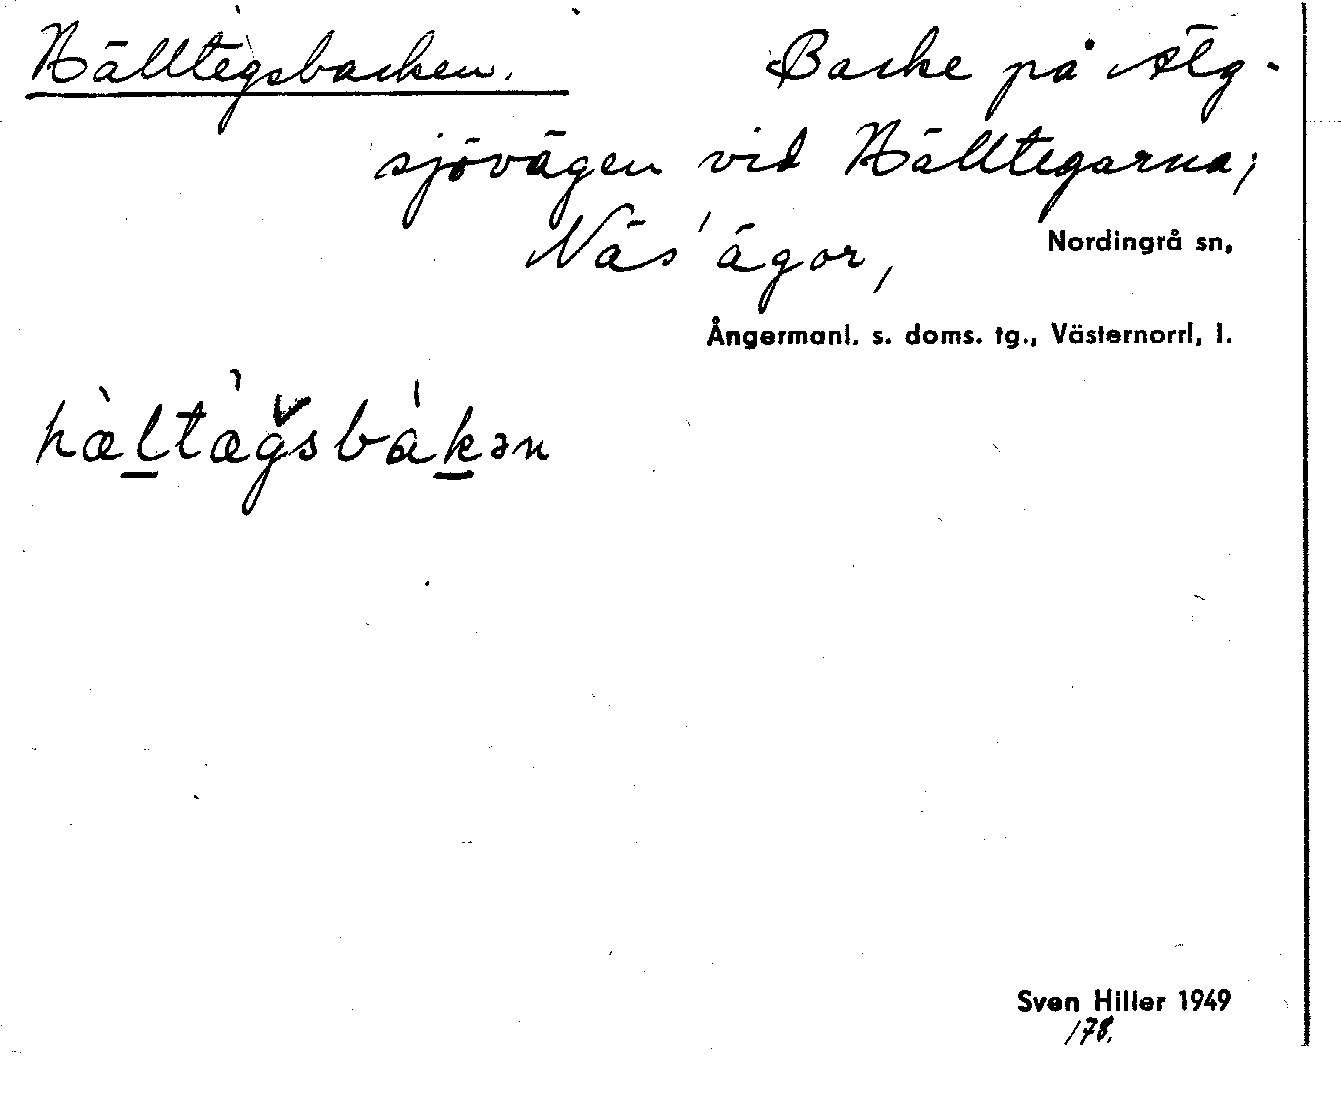 Hälltegsbacken. Backe på Älg-
sjövägen vid Hälltegarna;
Näs' ägor, Nordingrå sn,
Ångermanl. s. doms. tg., Västernorrl, l.
hæ̀ltæ̀gsbàkən
Sven Hiller 1949
178.